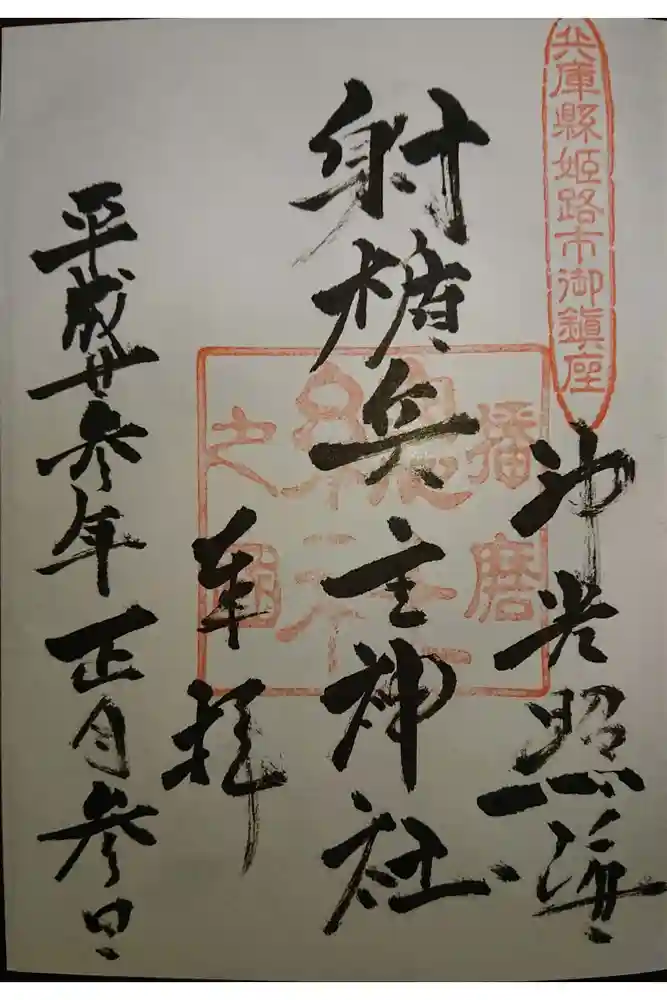 兵庫縣姫路市御鎮座
神光照海
射楯兵主神社
播磨
之國
総社
奉拝
平成廿参年正月参日